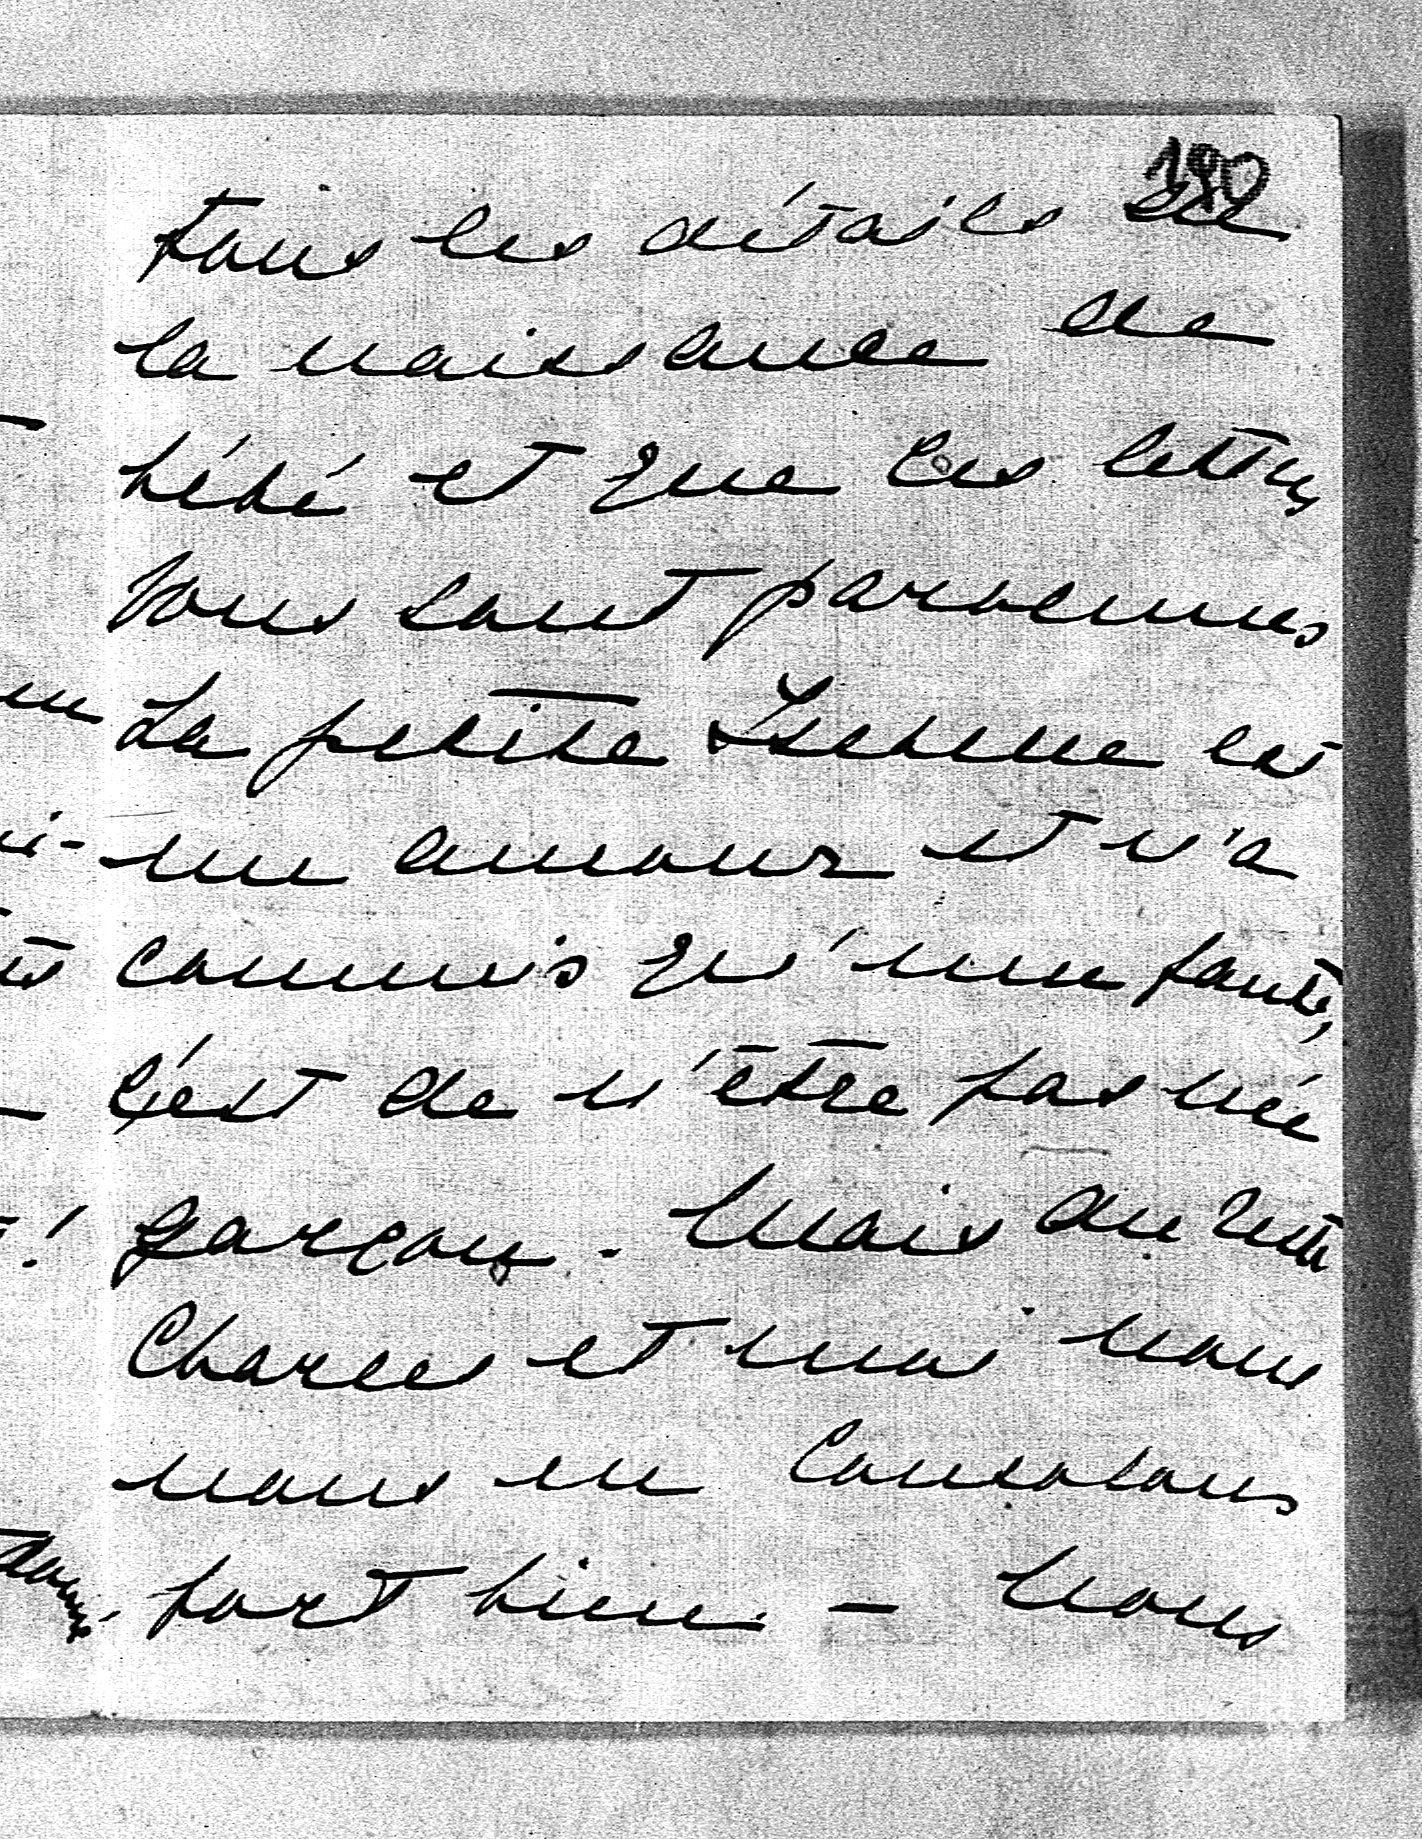 tous les détails de
la naissance de
bébé et que les lettres
vous sont parvenues
La petite est
un amour et n'a
commis qu'une faute,
c'est de n'être pas née
garçon. Mais du reste
Charles et moi nous
nous en consolons
fort bien — Nous